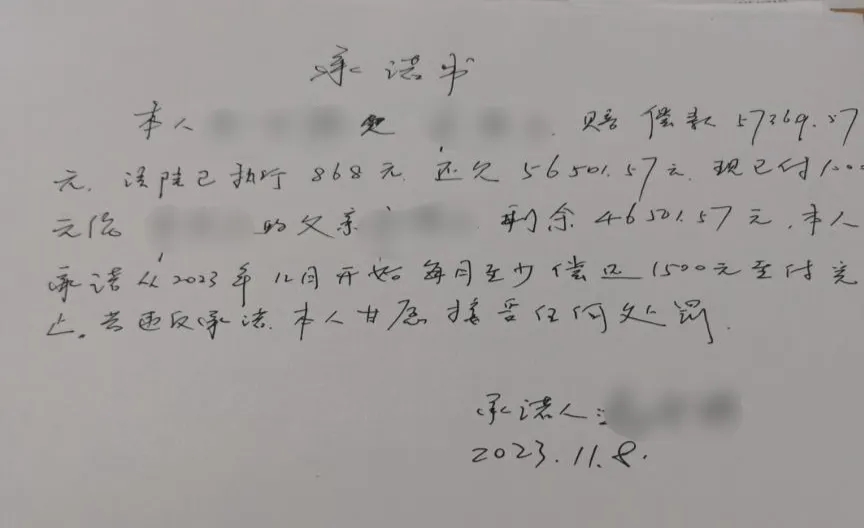 承诺书
本人 欠 赔偿款57369.57
元,法院已执行868元,还欠56501.57元,现已付1000
元给 的父亲 剩余46501.57元,本人
承诺从2023年12月开始每月至少偿还1500元至付完
止。若违反承诺,本人甘愿接受任何处罚.
承诺人:
2023.11.8.